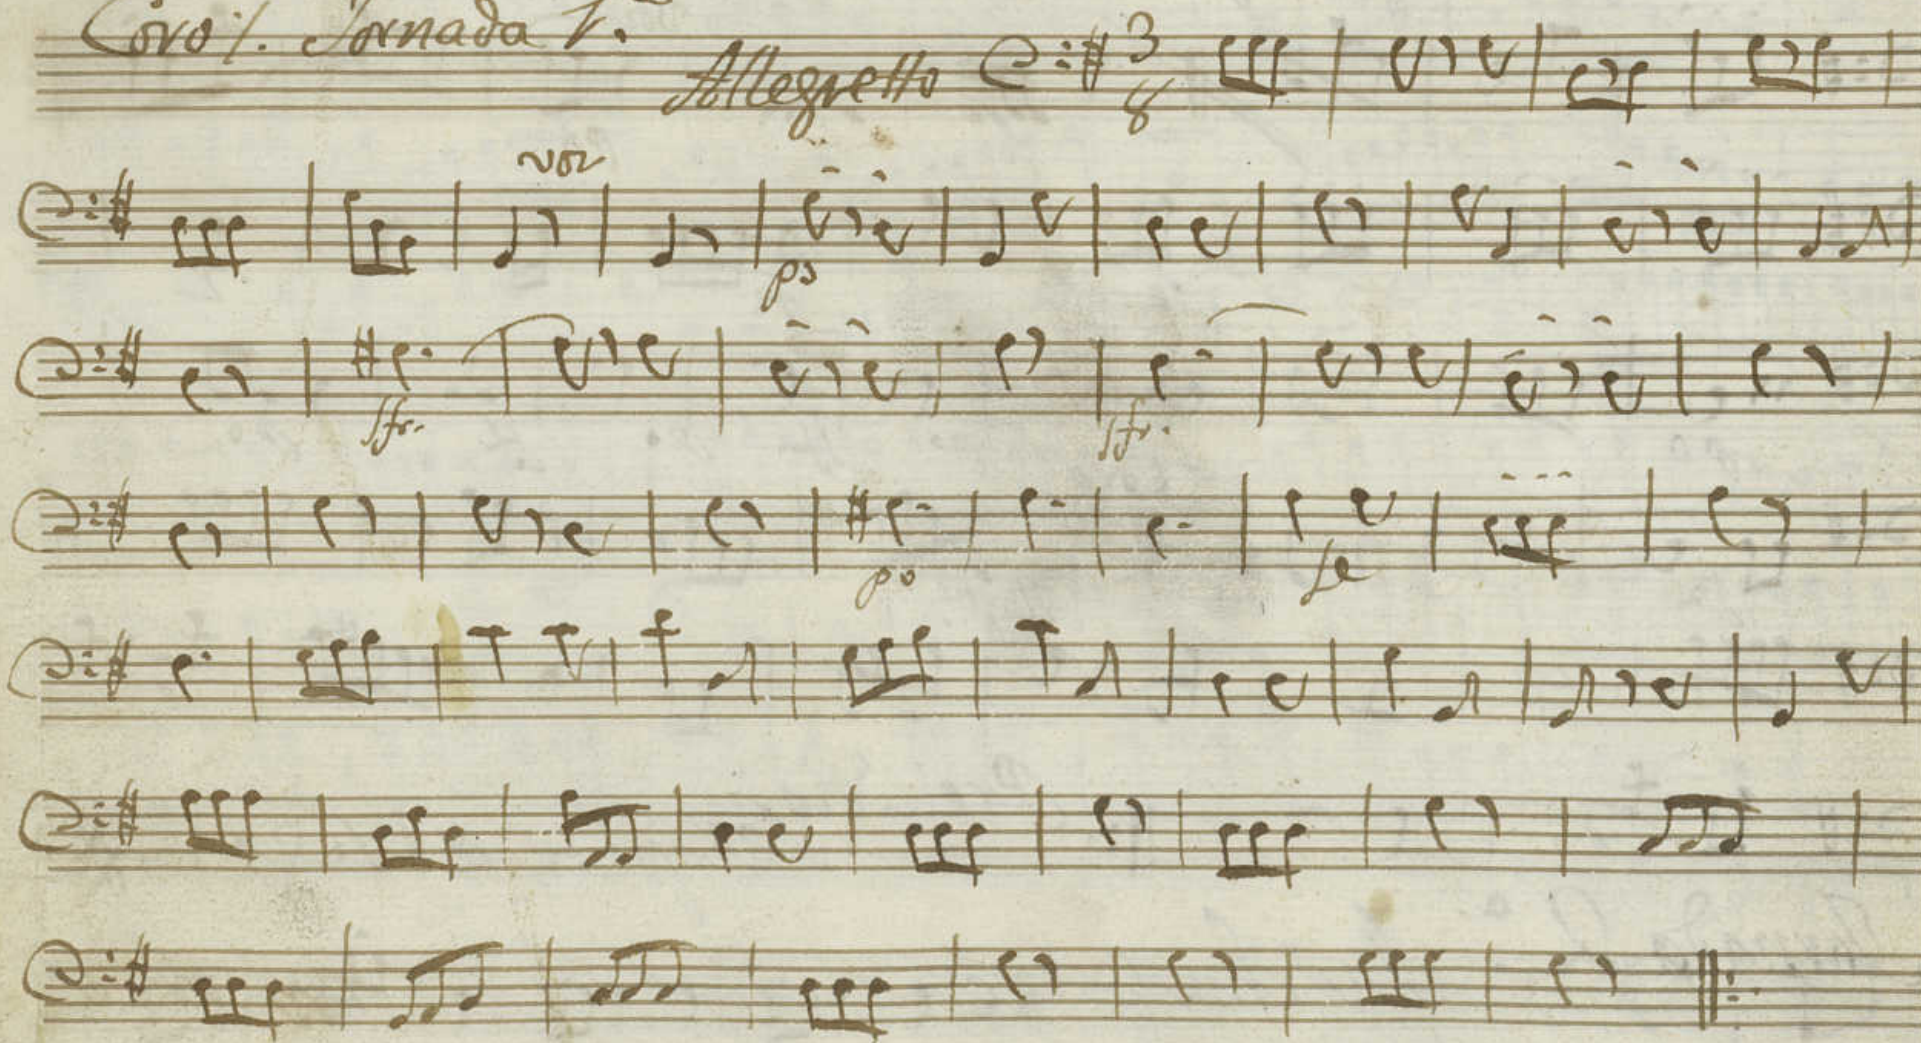 Coro /. Jornada 1.ª
Allegretto 3 8
voz
po
sfr. sfr.
po fe